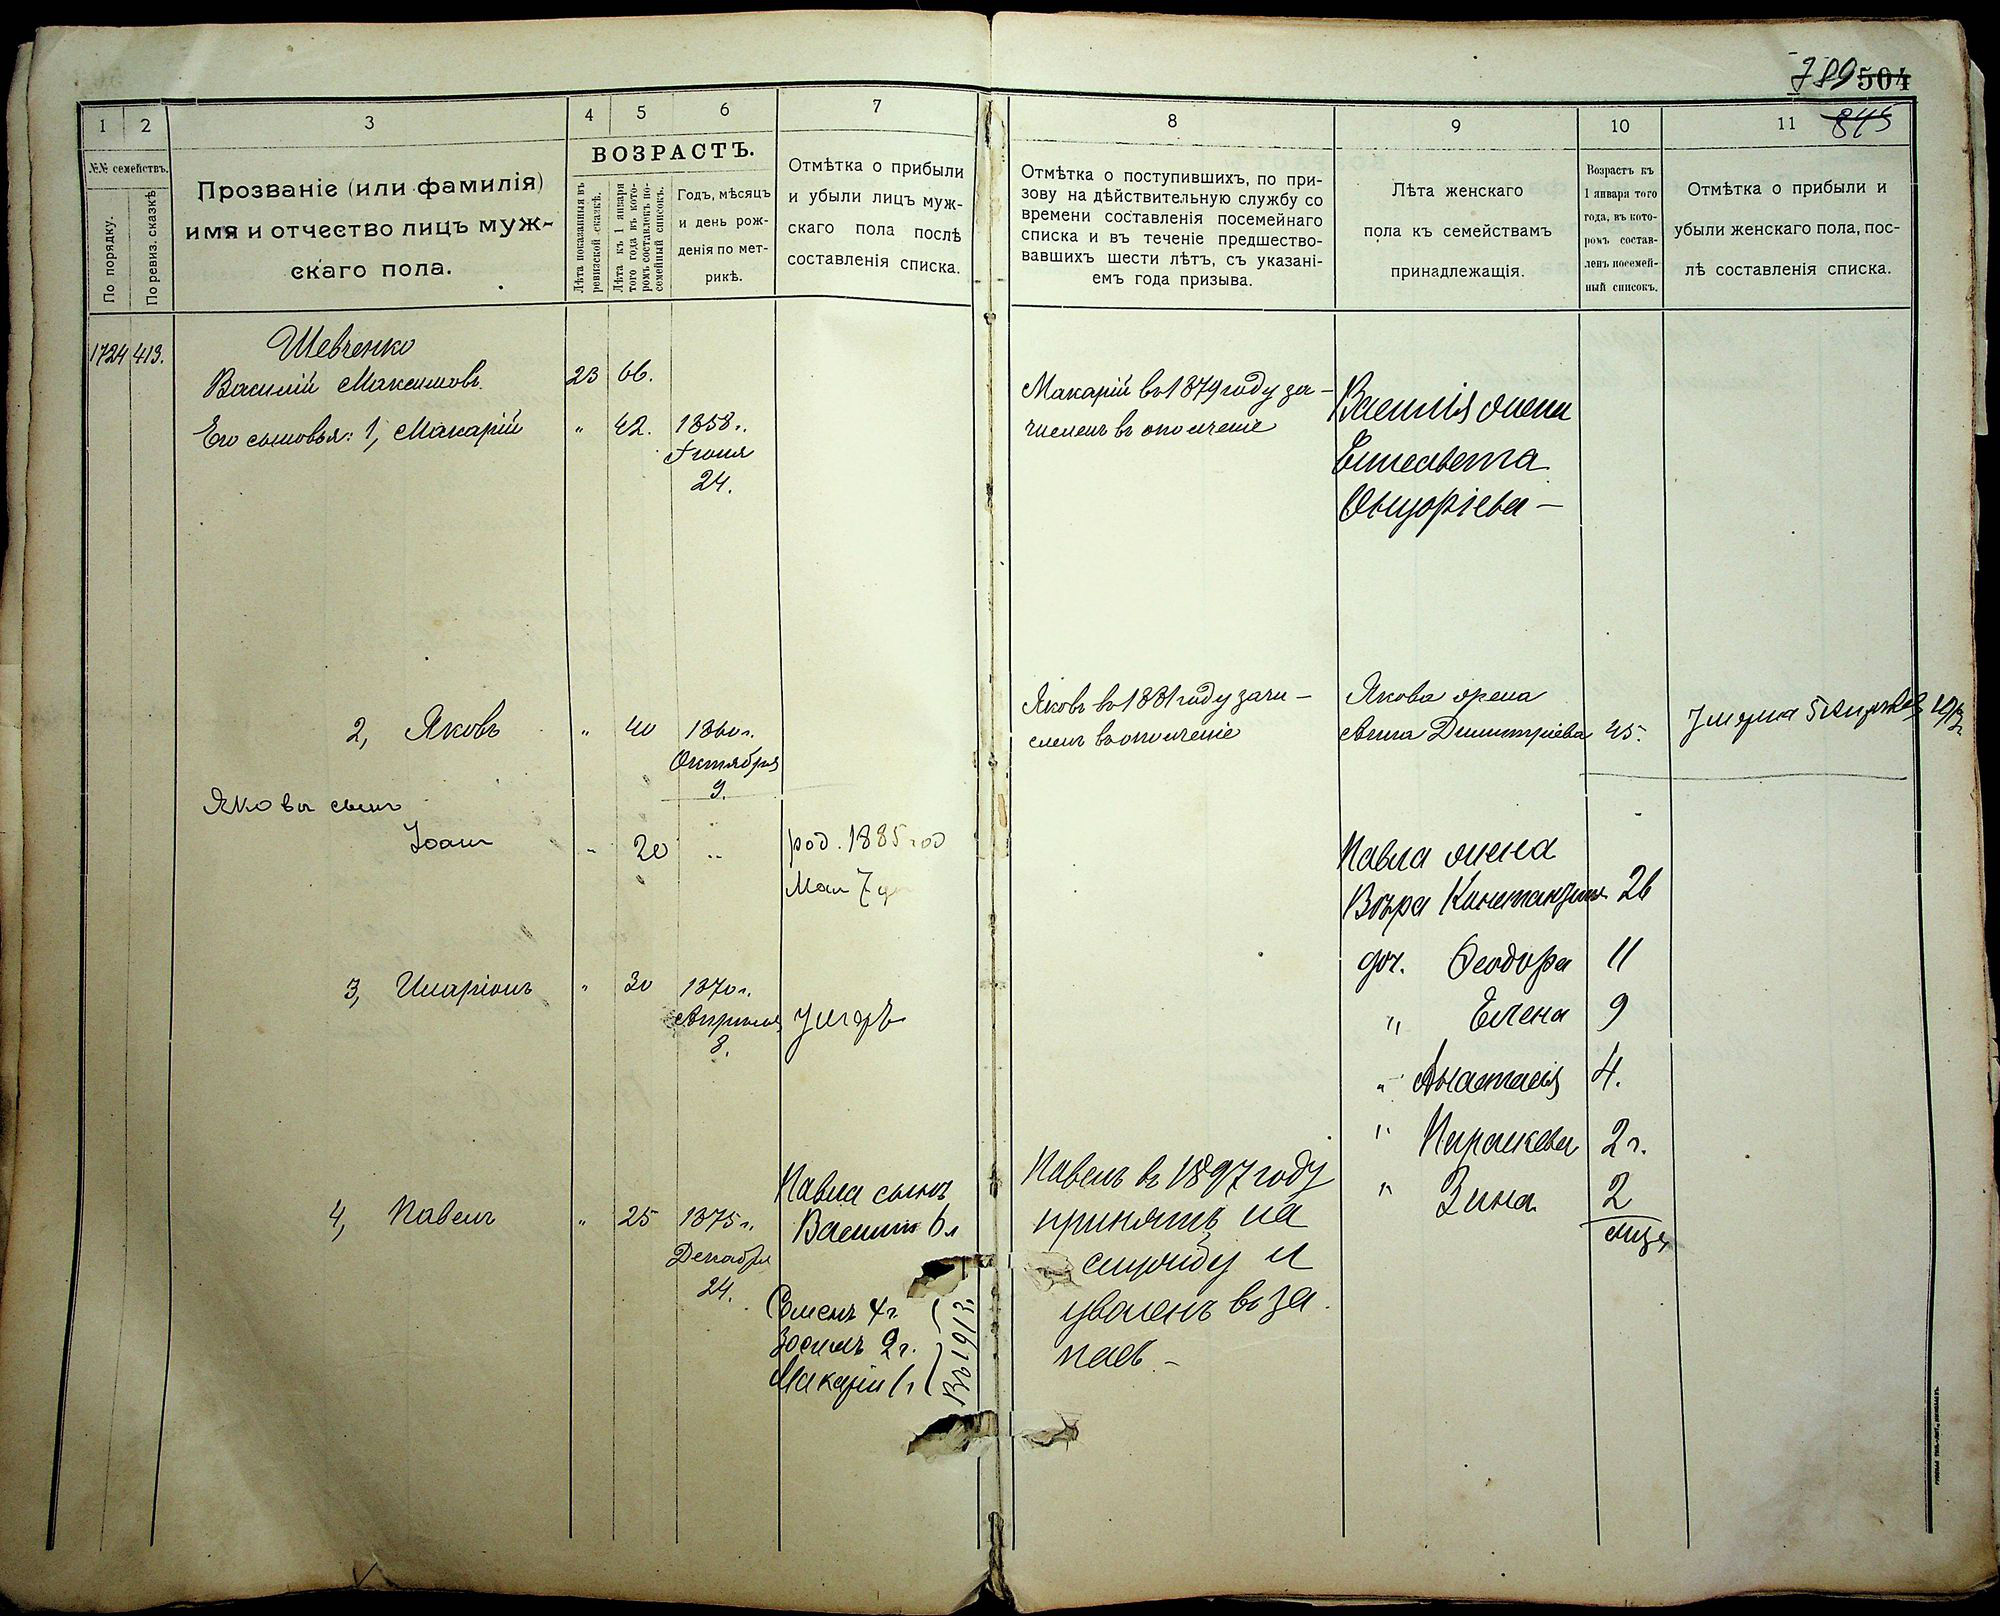 789 504
845
1
2
3
4
5
6
7
8
9
10
11
№№ семействъ.
По порядку.
По ревиз. сказкѣ
Прозваніе (или фамилія)
имя и отчество лицъ муж-
скаго пола.
ВОЗРАСТЪ.
Лѣта показанныя въ
ревизской сказкѣ.
Лѣта къ 1 января
того года въ кото-
ромъ составленъ по-
семейный списокъ.
Годъ, мѣсяцъ
и день рож-
денія по мет-
рикѣ.
Отмѣтка о прибыли
и убыли лицъ муж-
скаго пола послѣ
составленія списка.
Отмѣтка о поступившихъ, по при-
зову на дѣйствительную службу со
времени составленія посемейнаго
списка и въ теченіе предшество-
вавшихъ шести лѣтъ, съ указані-
емъ года призыва.
Лѣта женскаго
пола къ семействамъ
принадлежащія.
Возрастъ къ
1 января того
года, въ кото-
ромъ состав-
ленъ посемей-
ный списокъ.
Отмѣтка о прибыли и
убыли женскаго пола, пос-
лѣ составленія списка.
1724 413.
Шевченко
Василій Максимовъ 23 66.
Его сыновья: 1, Макарій " 42. 1858 г.
Іюня
24.
Макарій въ 1879 году за-
численъ въ ополченіе
Василія жена
Елисавета
2, Яковъ " 40 1860 г.
Октября
9.
Яковъ въ 1881 году зачи-
сленъ въ ополченіе
Якова жена
Анна Димитріева 45. Умерла 5
Якова сынъ
Іоанн " 20 "
род. 1885 год
Мая 7
3, Иларіонъ " 30 1870 г.
Апрѣля
8.
умеръ
4, Павелъ " 25 1875 г.
Декабря
24.
Павла сынъ
Василій 6 л
Семенъ 4 г.
Зосимъ 2 г.
Макарій 1 г
Въ 1913 г.
Павелъ въ 1897 году
принятъ на
службу и
уволенъ въ за
пасъ -
Павла жена
Вѣра 26
доч. Феодора 11
" Елена 9
" Анастасія 4.
" Параскева 2 г.
" Зина 2